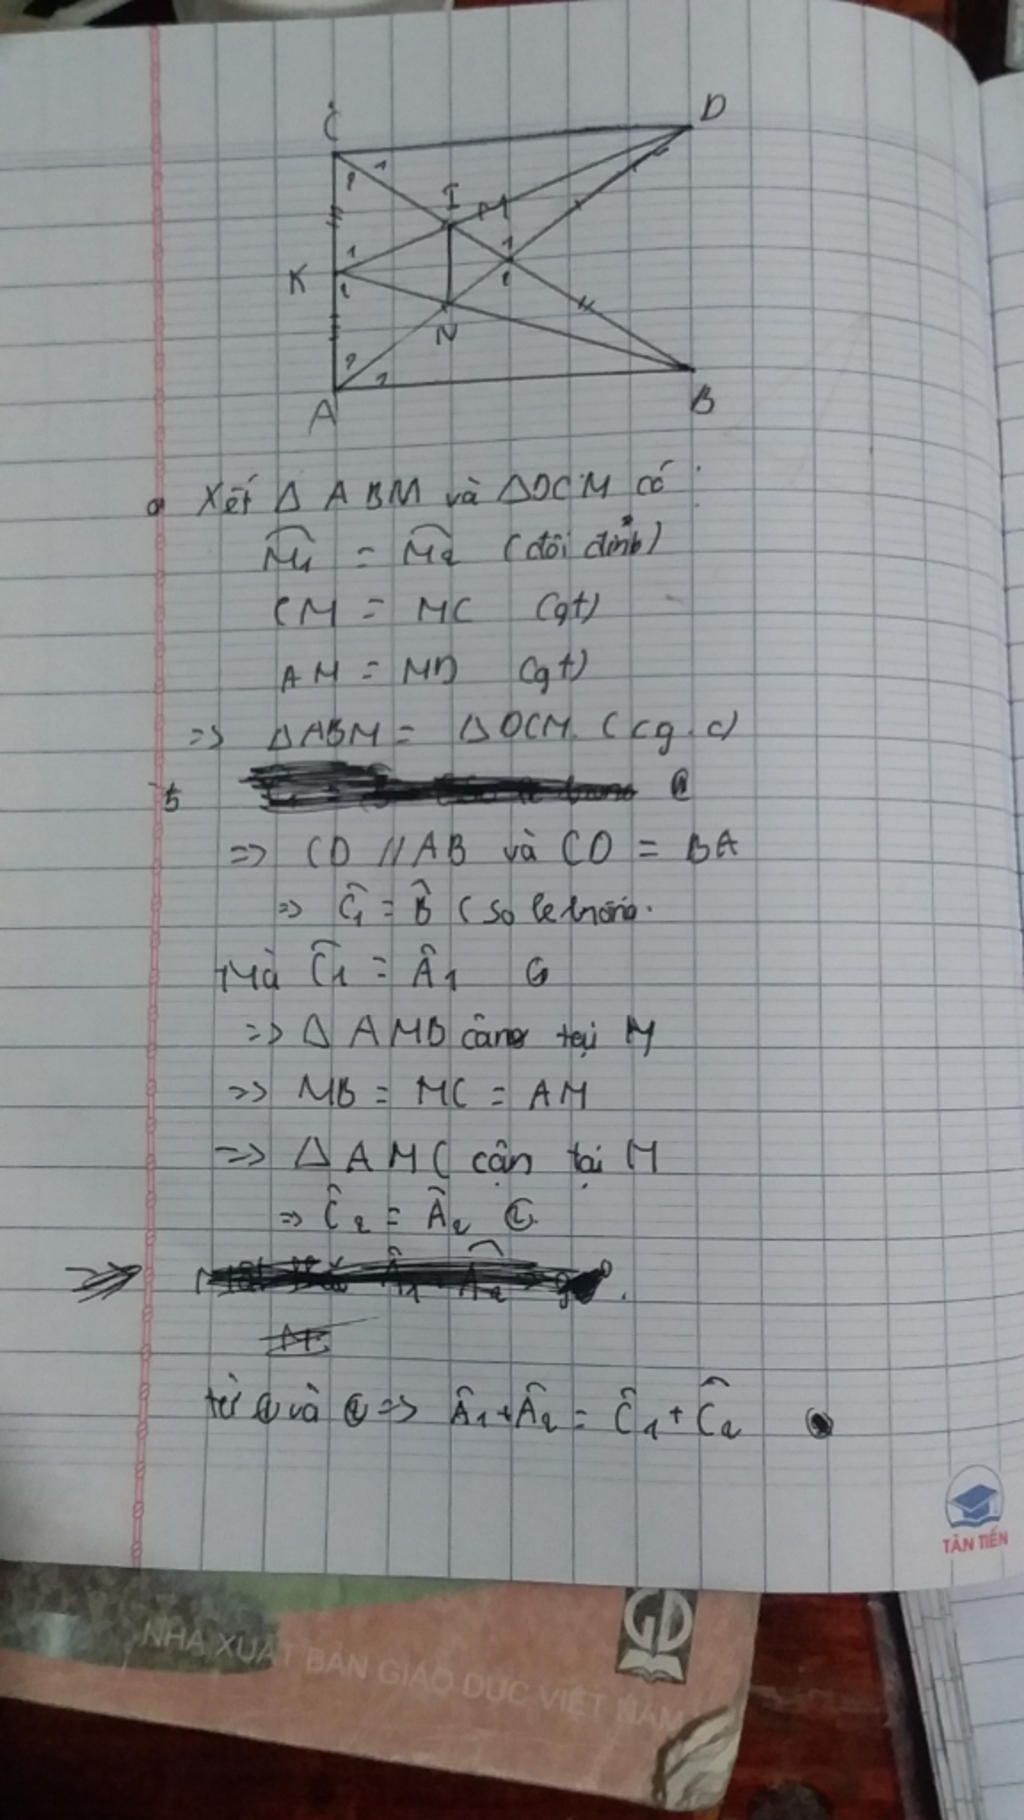 C
D
1
2
I
M
1
K
1
2
2
N
2
1
A
B
a Xét Δ ABM và ΔDCM có :
M1 = M2 (đối đỉnh)
CM = MC (gt)
AM = MD (gt)
=> ΔABM = ΔDCM. (c.g.c)
b
=> CD // AB và CD = BA
=> Ĉ1 = B̂ (so le trong.
Mà Ĉ1 = Â1
=> Δ AMB cân tại M
=> MB = MC = AM
=> Δ AMC cận tại M
=> Ĉ2 = Â2 ②
từ ① và ② => Â1 + Â2 = Ĉ1 + Ĉ2
TÂN TIẾN
GD
NHÀ XUẤT BẢN GIÁO DỤC VIỆT NAM